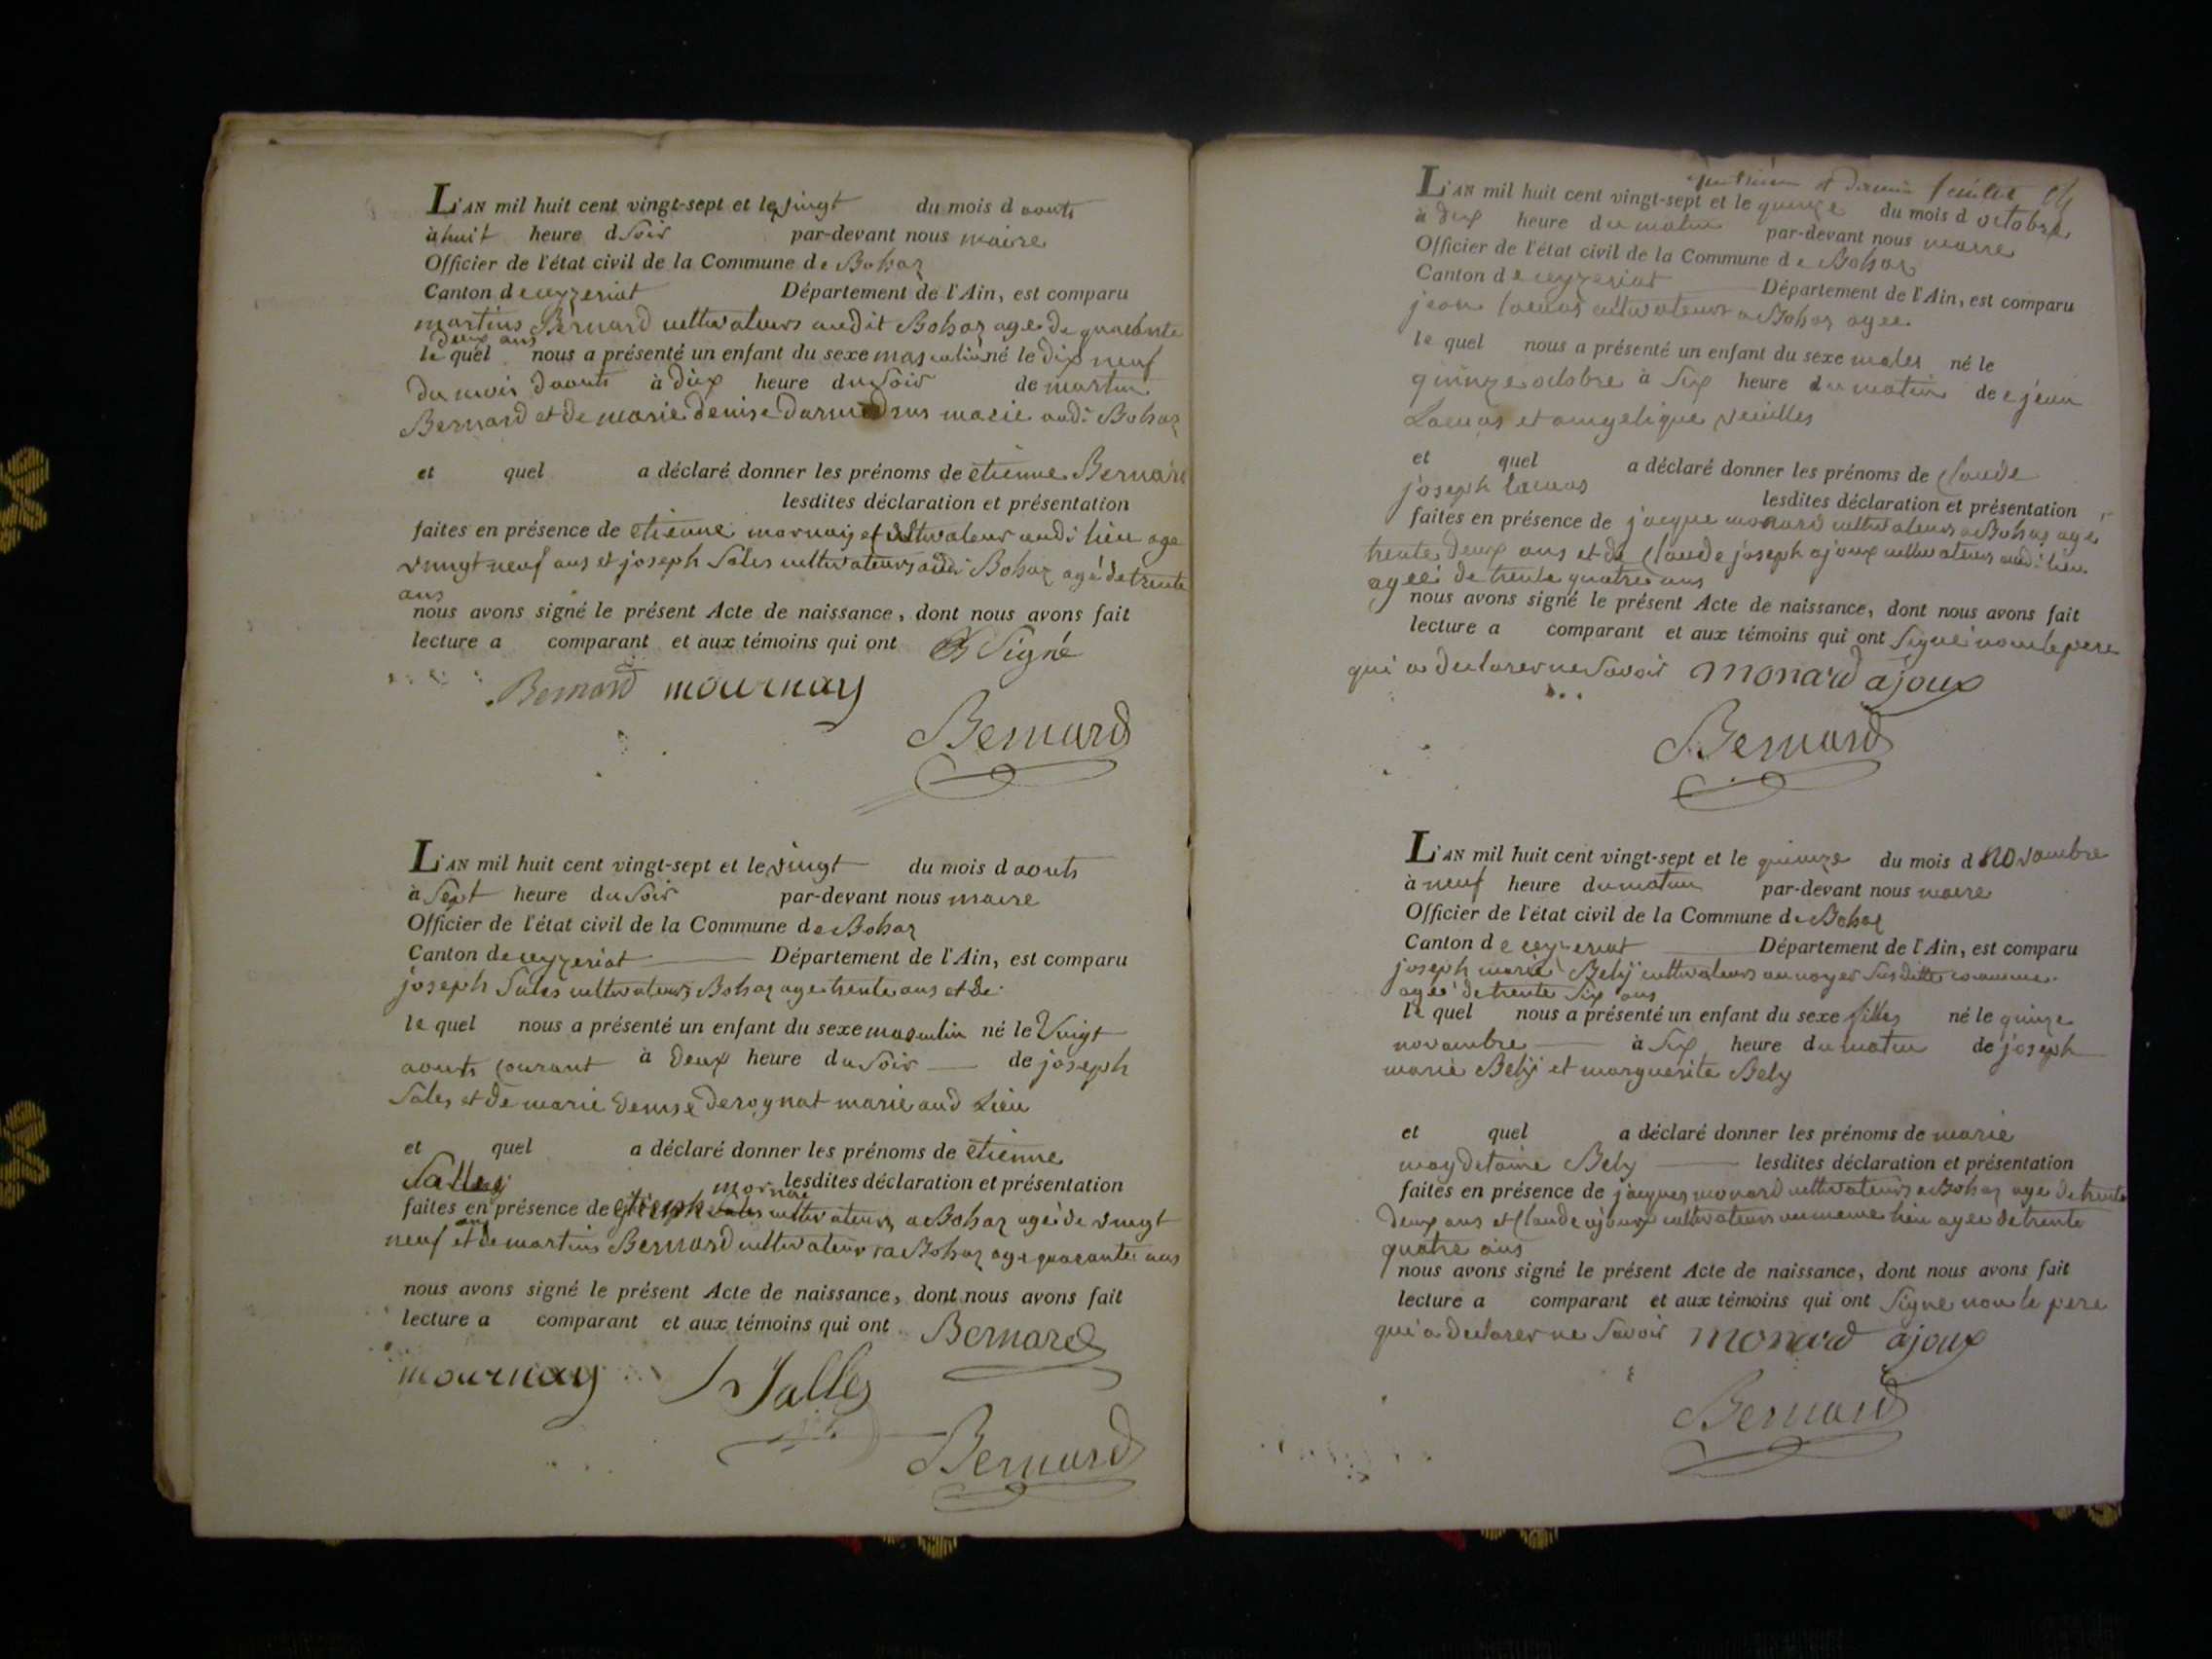 L'AN mil huit cent vingt-sept et le vingt du mois d aouts
à huit heure d soir par-devant nous maire
Officier de l'état civil de la Commune de Bohaz
Canton de ceyzeriat Département de l'Ain, est comparu
martins Bernard cultivateurs audit Bohaz age de quarante
deux ans
le quel nous a présenté un enfant du sexe masculin né le dix neuf
du mois d'aouts à dix heure du soir de martin
Bernard et de marie denise marie aud: Bohaz
et quel a déclaré donner les prénoms de etienne Bernard
lesdites déclaration et présentation
faites en présence de etienne mornay cultivateur aud: lieu age
vingt neuf ans et joseph Sales cultivateurs aud: Bohaz agé de trente
ans
nous avons signé le présent Acte de naissance, dont nous avons fait
lecture a comparant et aux témoins qui ont Signé
Bernard mournay
Bernard
L'AN mil huit cent vingt-sept et le vingt du mois d aouts
à Sept heure du soir par-devant nous maire
Officier de l'état civil de la Commune de Bohaz
Canton de ceyzeriat Département de l'Ain, est comparu
joseph Sales cultivateurs Bohaz age trente ans et de
le quel nous a présenté un enfant du sexe masculin né le Vingt
aouts courant à deux heure du soir de joseph
Sales et de marie denise deroynat marie aud Lieu
et quel a déclaré donner les prénoms de etienne
Salles lesdites déclaration et présentation
mornai
faites en présence de cultivateurs a Bohaz agé de vingt
neuf ans et de martins Bernard cultivateurs a Bohaz age quarante ans
nous avons signé le présent Acte de naissance, dont nous avons fait
lecture a comparant et aux témoins qui ont Bernard
mournay Salles
Bernard
et dernier feuillet
L'AN mil huit cent vingt-sept et le quinze du mois d octobre
à dix heure du matin par-devant nous maire
Officier de l'état civil de la Commune de Bohaz
Canton de ceyzeriat Département de l'Ain, est comparu
jean cultivateurs a Bohaz agee
le quel nous a présenté un enfant du sexe males né le
quinze octobre à Six heure du matin de jean
et angelique
et quel a déclaré donner les prénoms de Claude
joseph lesdites déclaration et présentation
faites en présence de jacque monard cultivateurs a Bohaz agé
trente deux ans et de Claude joseph ajoux cultivateurs aud: lieu
ageé de trente quatre ans
nous avons signé le présent Acte de naissance, dont nous avons fait
lecture a comparant et aux témoins qui ont Signé non le pere
qui a declarer ne Savoir monard ajoux
Bernard
L'AN mil huit cent vingt-sept et le quinze du mois d novambre
à neuf heure du matin par-devant nous maire
Officier de l'état civil de la Commune de Bohaz
Canton de ceyzeriat Département de l'Ain, est comparu
joseph marie Bely cultivateurs au noyer Susditte commune
ageé de trente Six ans
le quel nous a présenté un enfant du sexe filles né le quinze
novambre à Six heure du matin de joseph
marie Bely et marguerite Bely
et quel a déclaré donner les prénoms de marie
maydelaine Bely lesdites déclaration et présentation
faites en présence de jacques monard cultivateurs a Bohaz age de trente
deux ans et Claude ajoux cultivateurs au meme lieu ageé de trente
quatre ans
nous avons signé le présent Acte de naissance, dont nous avons fait
lecture a comparant et aux témoins qui ont Signe non le pere
qui a declarer ne Savoir monard ajoux
Bernard